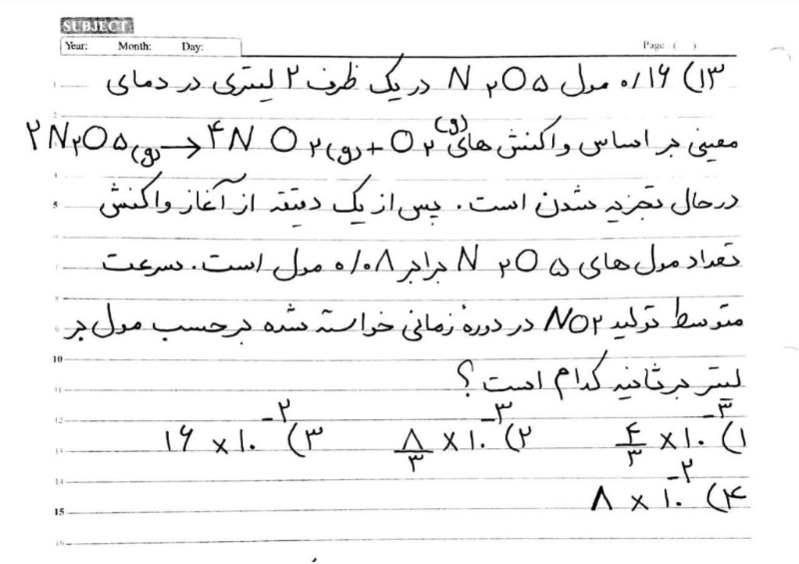 SUBJECT:
Year: Month: Day: Page ( )
۱۳) ۰/۱۶ مول N۲O۵ در یک ظرف ۲ لیتری در دمای
معینی بر اساس واکنش های ۲N۲O۵(g) → ۴NO۲(g) + O۲(g)
درحال تجزیه شدن است. پس از یک دقیقه از آغاز واکنش
تعداد مول های N۲O۵ برابر ۰/۰۸ مول است. سرعت
متوسط تولید NO۲ در دورهٔ زمانی خواسته شده برحسب مول بر
لیتر بر ثانیه کدام است؟
۱) ۴/۳ × ۱۰^-۳ ۲) ۸/۳ × ۱۰^-۳ ۳) ۱۶ × ۱۰^-۲
۴) ۸ × ۱۰^-۲